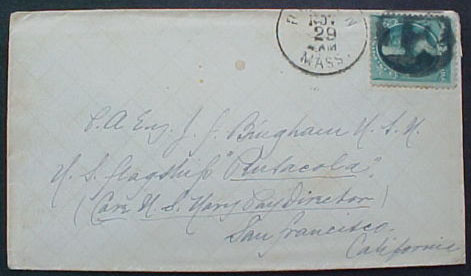 NOV
29
AM
MASS.
P. A. Eng. J. J. Bingham U.S.N.
U.S. flagship "Pensacola",
(Care U.S. Navy Pay Director)
San Francisco.
California